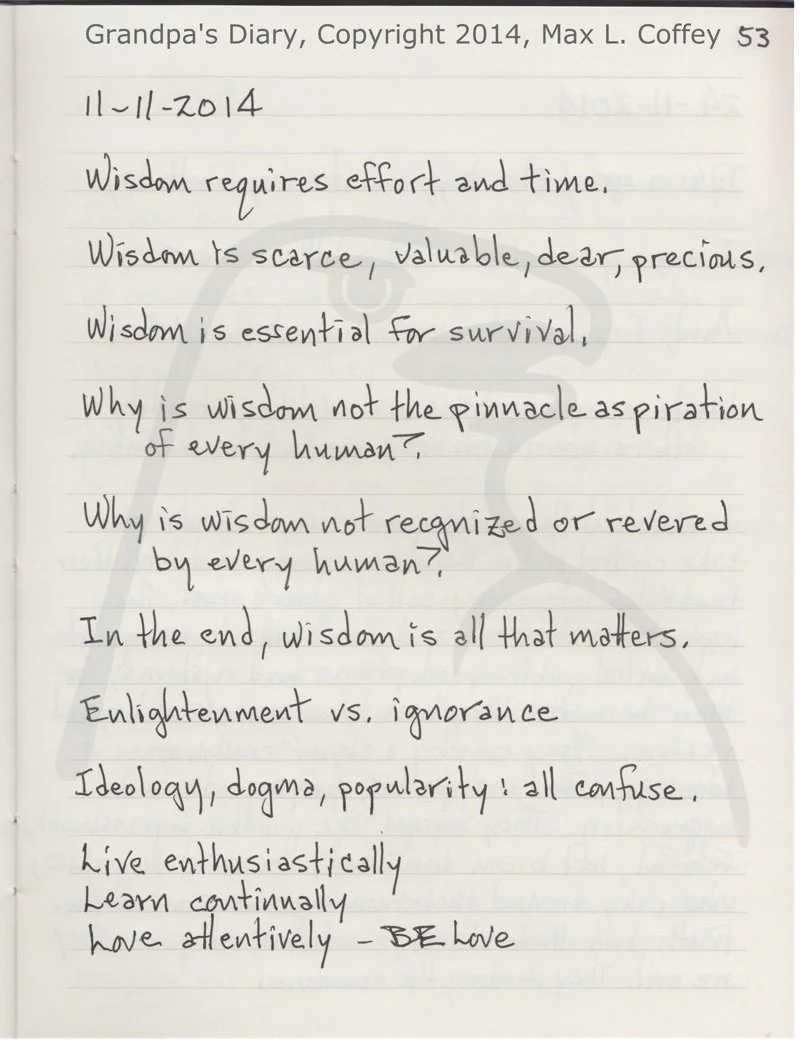 Grandpa's Diary, Copyright 2014, Max L. Coffey 53
11-11-2014
Wisdom requires effort and time.
Wisdom is scarce, valuable, dear, precious.
Wisdom is essential for survival.
Why is wisdom not the pinnacle aspiration
of every human?
Why is wisdom not recgnized or revered
by every human?
In the end, wisdom is all that matters.
Enlightenment vs. ignorance
Ideology, dogma, popularity: all confuse.
Live enthusiastically
Learn continually
Love attentively - BE Love